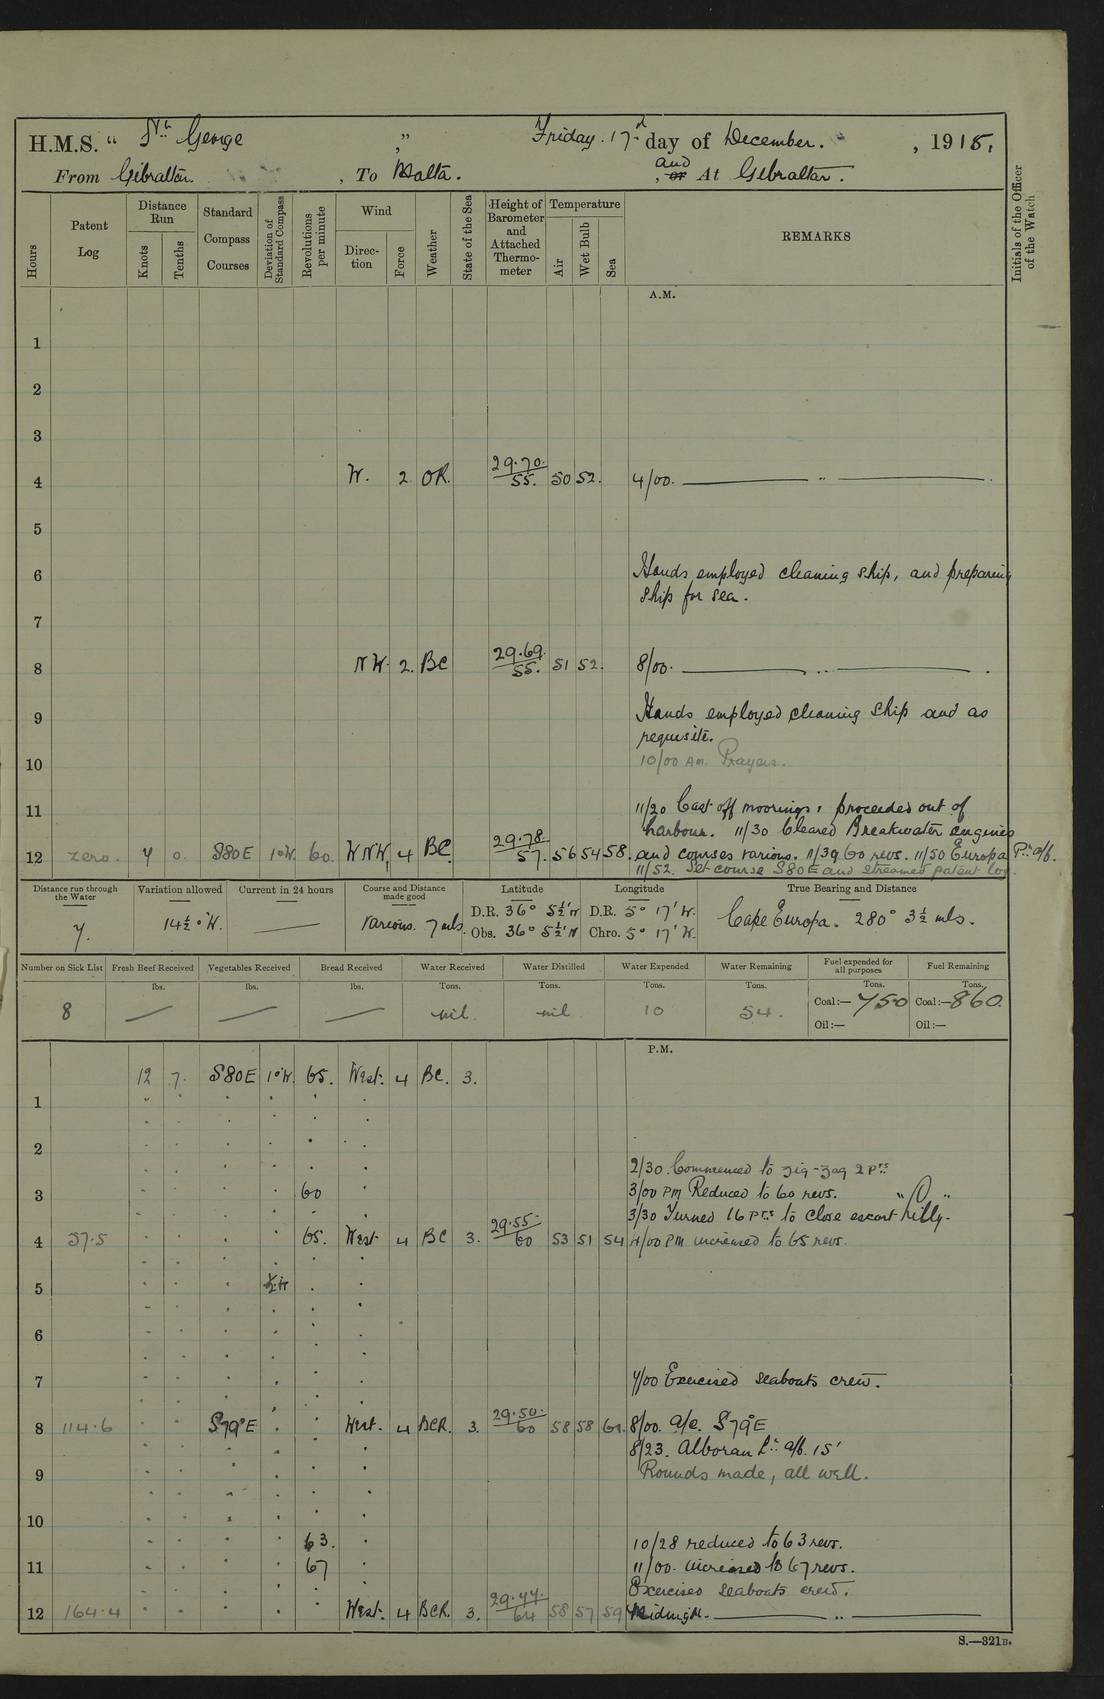 H.M.S. " St George " Friday. 17th day of December. , 1915.
From Gibraltar. , To Malta. , and or At Gibraltar.
Hours
Patent Log
Distance Run
Knots
Tenths
Standard Compass Courses
Deviation of Standard Compass
Revolutions per minute
Wind
Direction
Force
Weather
State of the Sea
Height of Barometer and Attached Thermometer
Temperature
Air
Wet Bulb
Sea
REMARKS
Initials of the Officer of the Watch
A.M.
1
2
3
4 W. 2. OR. 29.70. 55. 50 52. 4/00. ——— " ———.
5
6 Hands employed cleaning ship, and preparing
ship for sea.
7
8 NW. 2. BC 29.69. 55. 51 52. 8/00. ——— .. ———.
9 Hands employed cleaning ship and as
requisite.
10 10/00 AM. Prayers.
11 11/20 Cast off moorings, proceeded out of
harbour. 11/30 Cleared Breakwater engines
12 zero. 7 0. S80E 1°W. 60. WNW. 4 BC. 29.78. 57. 56 54 58. and courses various. 11/39 60 revs. 11/50 Europa Pt. a/b.
11/52. Set course S80E and streamed patent log.
Distance run through the Water
7.
Variation allowed
14½° W.
Current in 24 hours
—
Course and Distance made good
Various. 7 mls.
Latitude
D.R. 36° 5½' N
Obs. 36° 5½' N
Longitude
D.R. 5° 17' W.
Chro. 5° 17' W.
True Bearing and Distance
Cape Europa. 280° 3½ mls.
Number on Sick List Fresh Beef Received Vegetables Received Bread Received Water Received Water Distilled Water Expended Water Remaining Fuel expended for all purposes Fuel Remaining
lbs. lbs. lbs. Tons. Tons. Tons. Tons. Tons. Tons.
8 — — — nil. nil 10 54. Coal:— 750 Coal:— 860.
Oil:— Oil:—
P.M.
12 7. S80E 1°W. 65. West. 4 BC. 3.
1
2
2/30. Commenced to zig-zag 2 pts
3 60 3/00 PM Reduced to 60 revs.
3/30 Turned 16 pts to close escort
4 37.5 65. West 4 BC 3. 29.55. 60 53 51 54 4/00 PM increased to 65 revs.
5 ½W
6
7 7/00 Exercised seaboats crew.
8 114.6 S79°E West. 4 BCR. 3. 29.50. 60 58 58 60. 8/00. a/c. S79°E
8/23. Alboran Lt. a/b. 15'
9 Rounds made, all well.
10
63. 10/28 reduced to 63 revs.
11 67 11/00. increased to 67 revs.
Exercised seaboats crew.
12 164.4 West. 4 BCR. 3. 29.44. 64 58 57 59 Midnight. ——— .. ———
S.—321B.